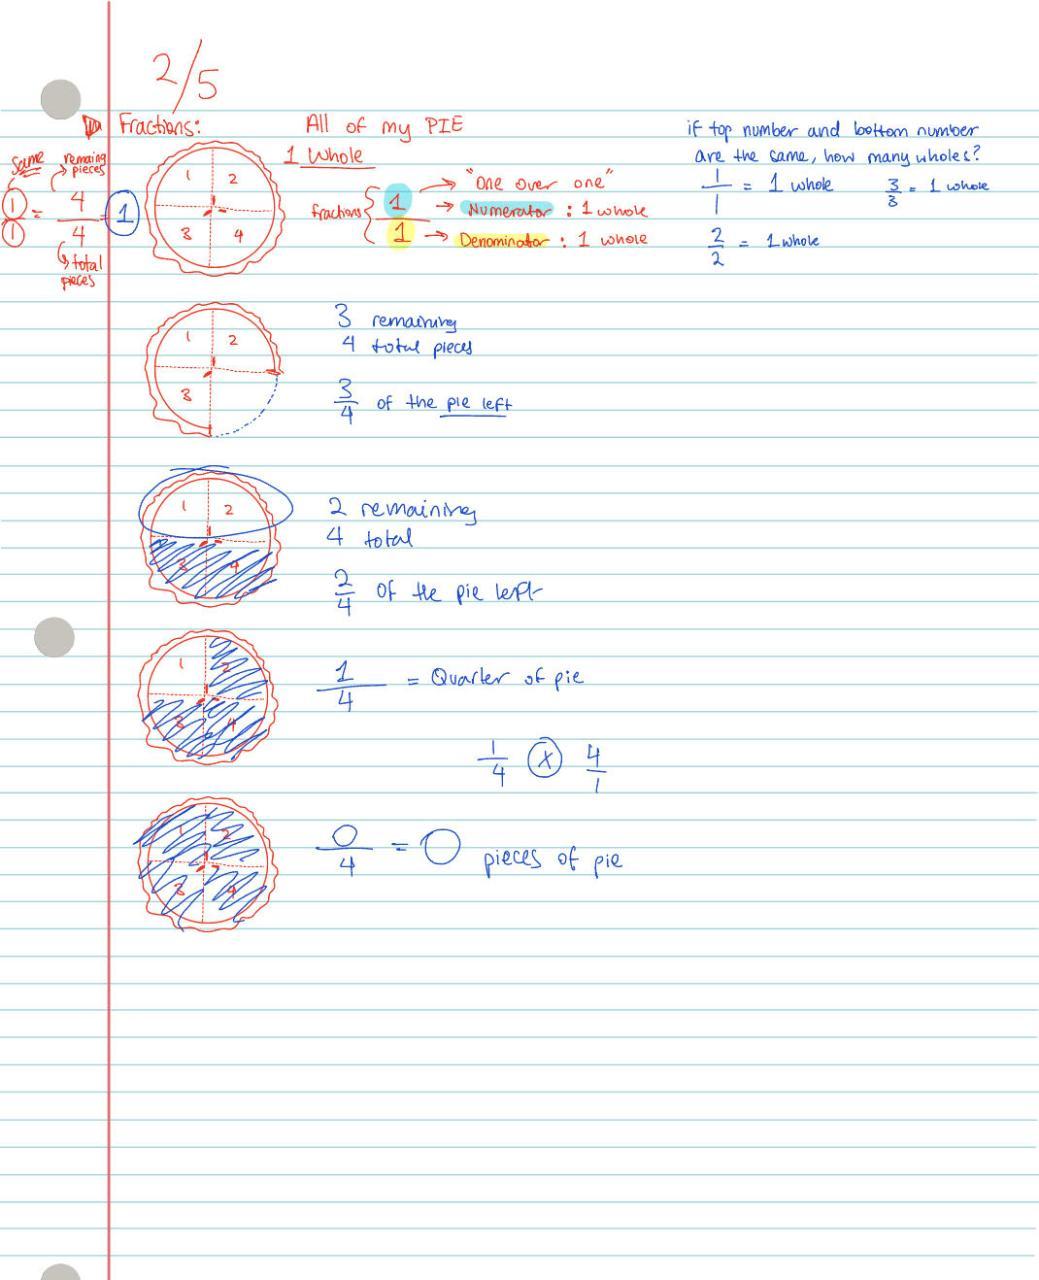 2/5
Fractions:
All of my PIE
1 Whole
if top number and bottom number
are the same, how many wholes?
1/1 = 1 whole
3/3 = 1 whole
2/2 = 1 whole
same
remaing
pieces
1/1 = 4/4 = 1
total
pieces
1 2
3 4
fractions { 1/1
"One over one"
Numerator : 1 whole
Denominator : 1 whole
1 2
3
3 remaining
4 total pieces
3/4 of the pie left
1 2
3 4
2 remaining
4 total
2/4 of the pie left
1 2
3 4
1/4 = Quarter of pie
1/4 x 4/1
1 2
3 4
0/4 = 0 pieces of pie